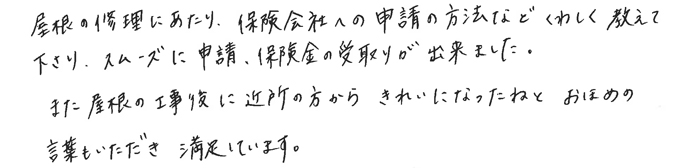 屋根の修理にあたり、保険会社への申請の方法などくわしく教えて
下さり、スムーズに申請、保険金の受取りが出来ました。
また屋根の工事後に近所の方からきれいになったねとおほめの
言葉もいただき満足しています。